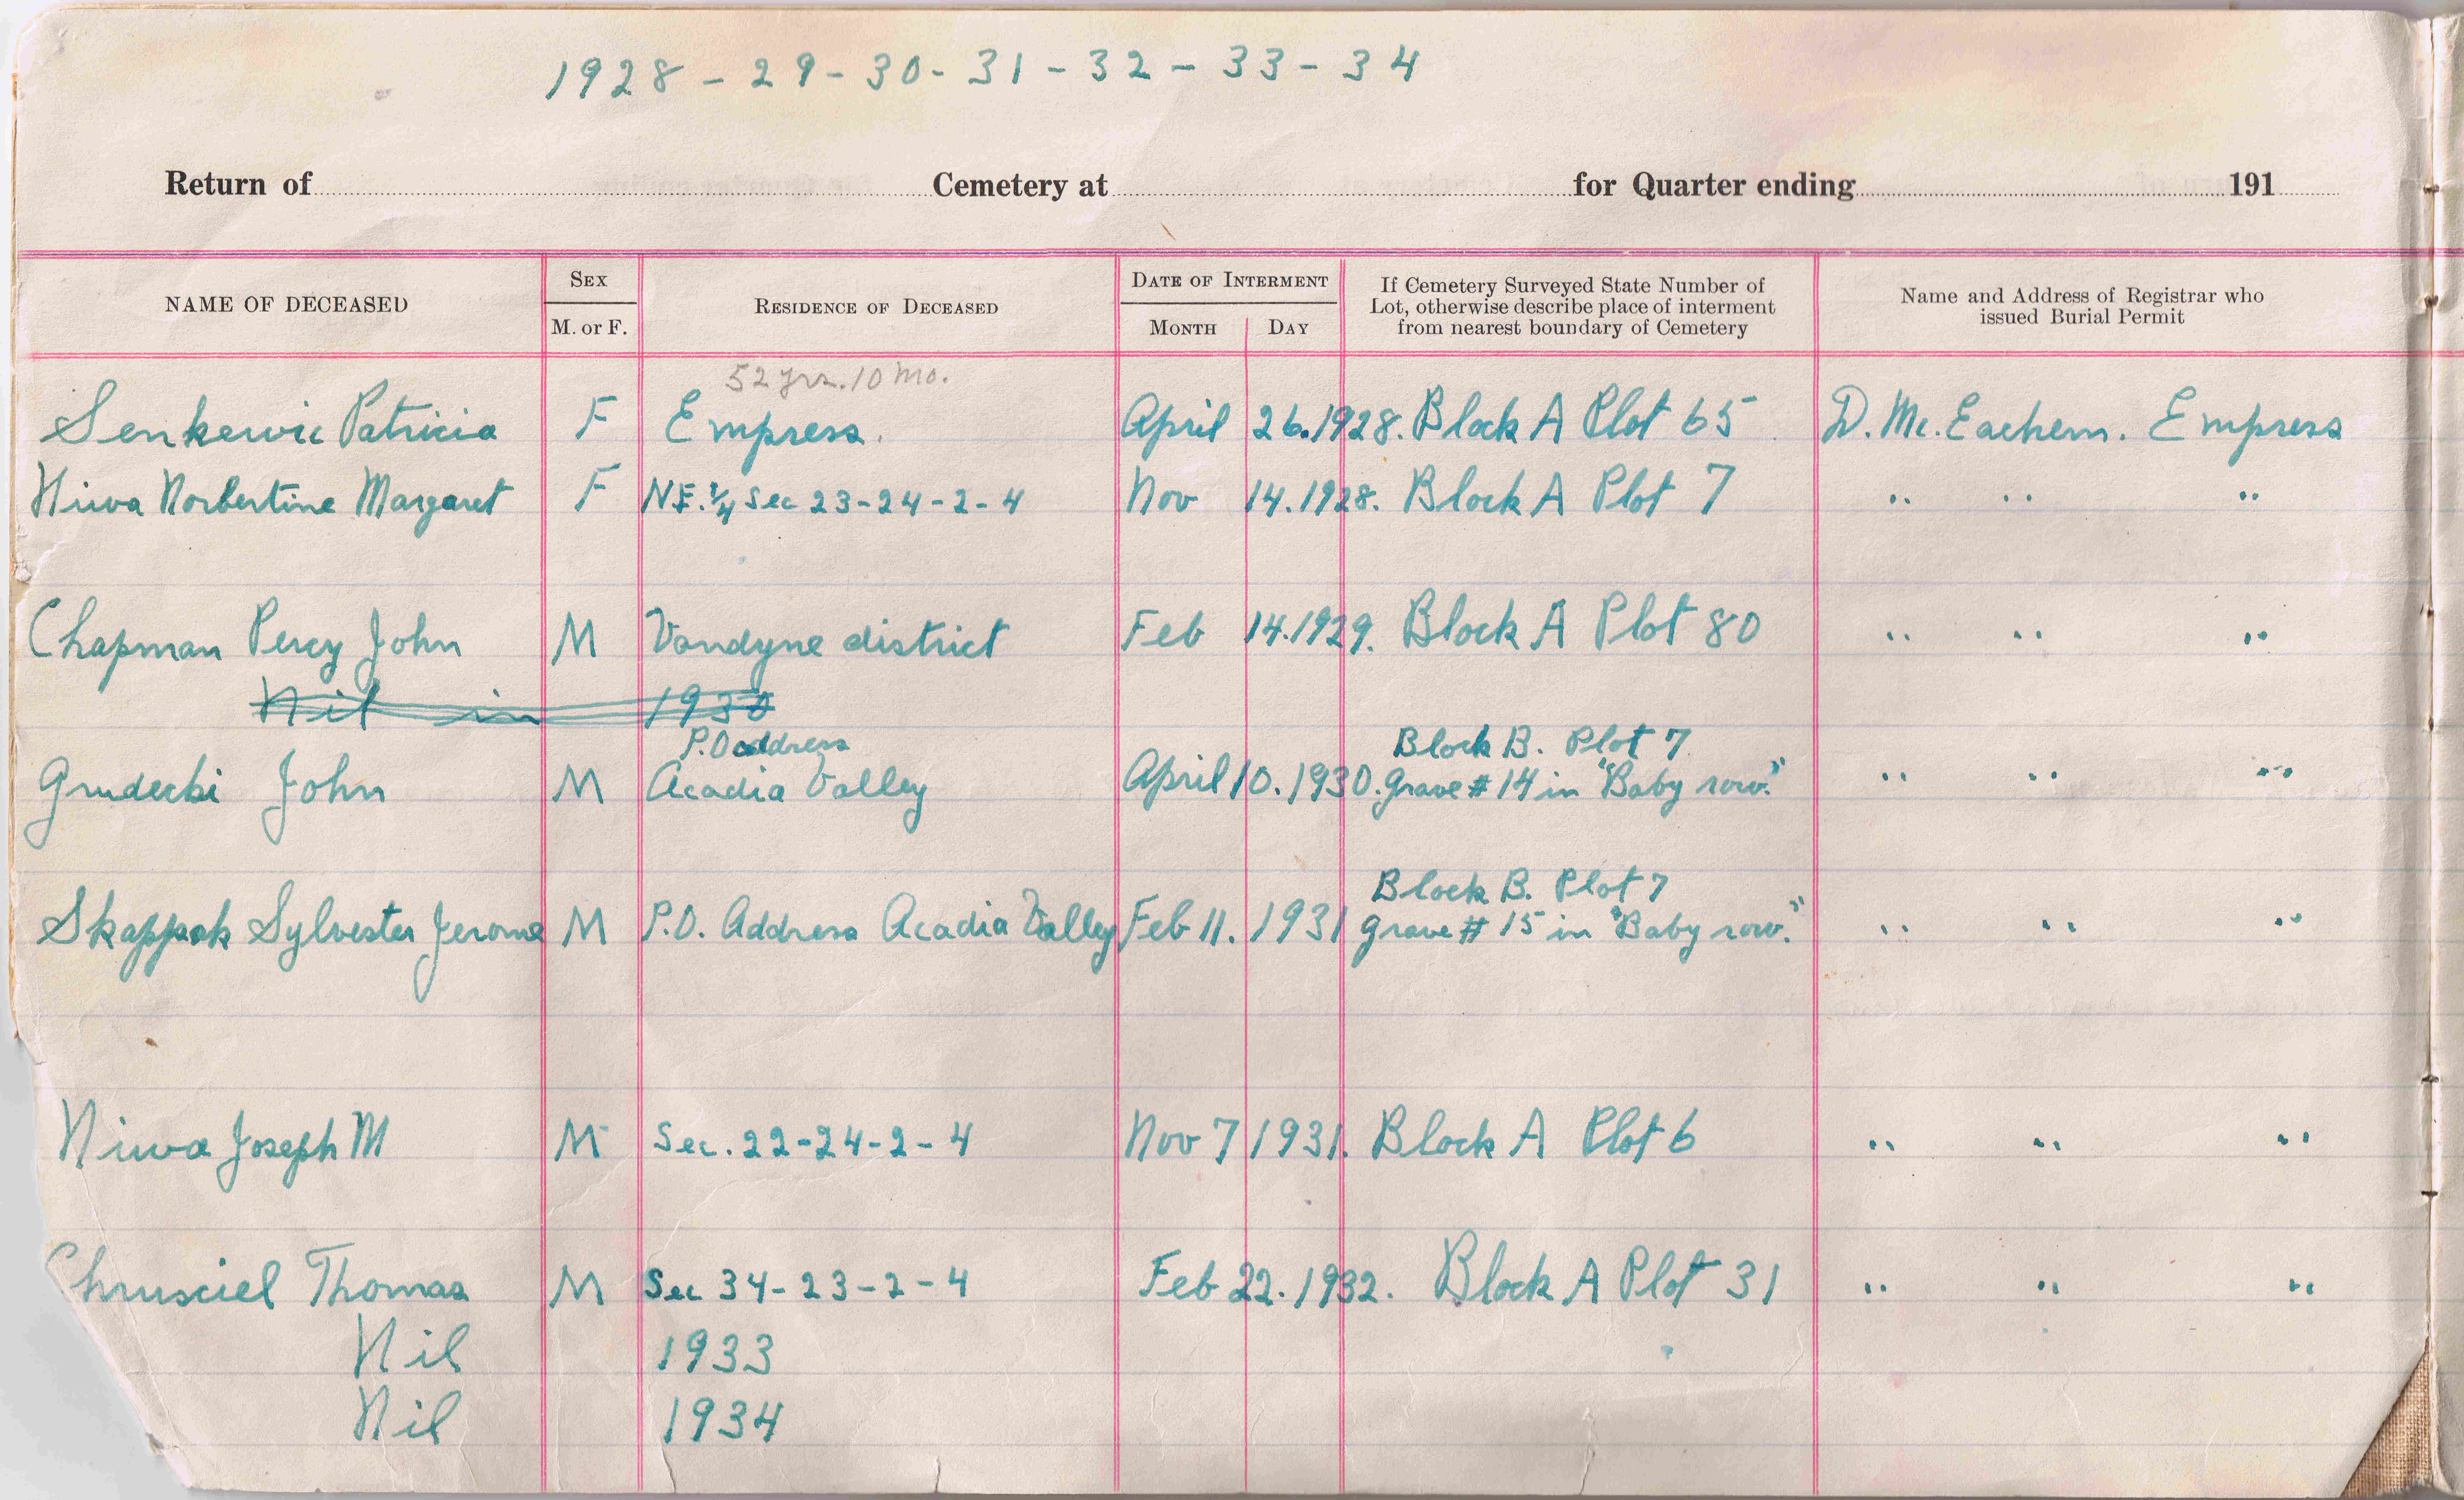 1928 - 29 - 30 - 31 - 32 - 33 - 34
Return of Cemetery at for Quarter ending 191
NAME OF DECEASED SEX M. or F. RESIDENCE OF DECEASED DATE OF INTERMENT MONTH DAY If Cemetery Surveyed State Number of Lot, otherwise describe place of interment from nearest boundary of Cemetery Name and Address of Registrar who issued Burial Permit
52 yrs. 10 mo.
Senkewic Patricia F Empress. April 26. 1928. Block A Plot 65 D. Mc. Eachern. Empress
Niwa Norbertine Margaret F N.E. 1/4 Sec 23-24-2-4 Nov 14. 1928. Block A Plot 7 " " "
Chapman Percy John M Vandyne district Feb 14. 1929. Block A Plot 80 " " "
Nil in 1930
P.O address Block B. Plot 7
Grudecki John M Acadia Valley April 10. 1930. Grave # 14 in "Baby row." " " "
Block B. Plot 7
Skappak Sylvester Jerome M P.O. Address Acadia Valley Feb 11. 1931 Grave # 15 in "Baby row." " " "
Niwa Joseph M M Sec. 22-24-2-4 Nov 7 1931. Block A Plot 6 " " "
Chrusciel Thomas M Sec 34-23-2-4 Feb 22. 1932. Block A Plot 31 " " "
Nil 1933
Nil 1934